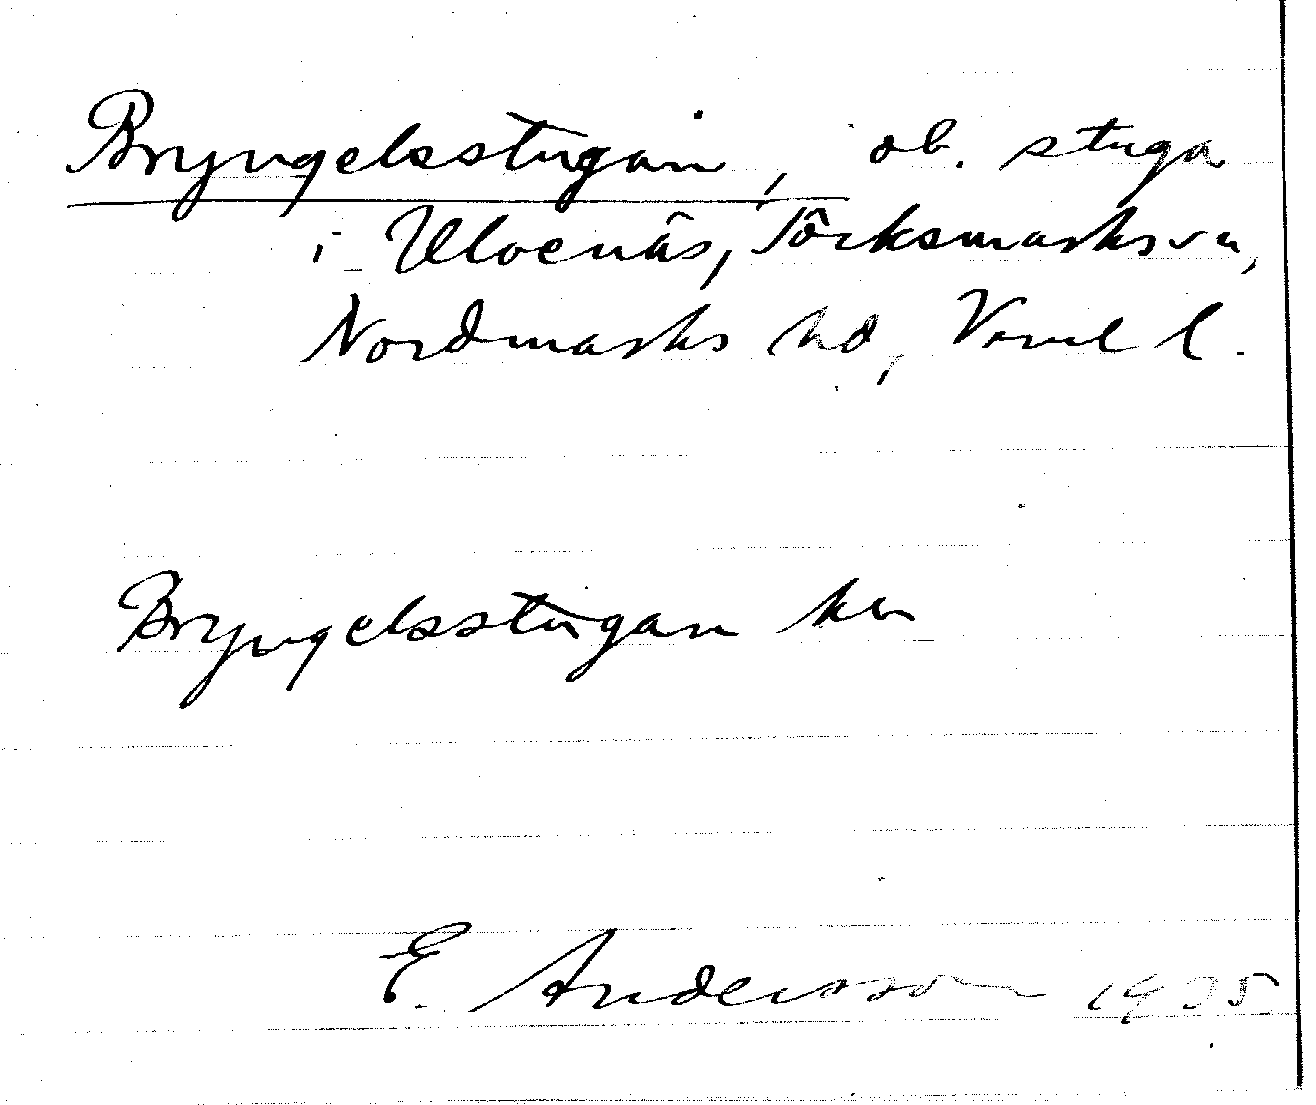 Bryngelsstugan, ob. stuga
i Uloenäs, Töcksmarks sn,
Nordmarks hd, Verml l.
Bryngelsstugan ker
E. Andersson 1935